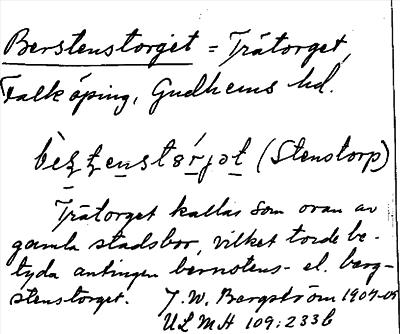 Berstenstorget = Trätorget,
Falköping, Gudhems hd.
(Stenstorp)
Trätorget kallas som ovan av
gamla stadsbor, vilket torde be-
tyda antingen bernstens- el. berg-
stenstorget. J. W. Bergström 1904-05
ULMA 109:233b